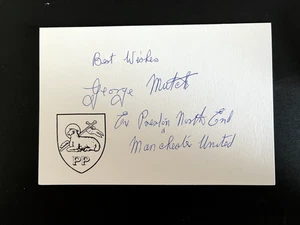 Best Wishes
George Mutch
Ex Preston North End
&
Manchester United
PP